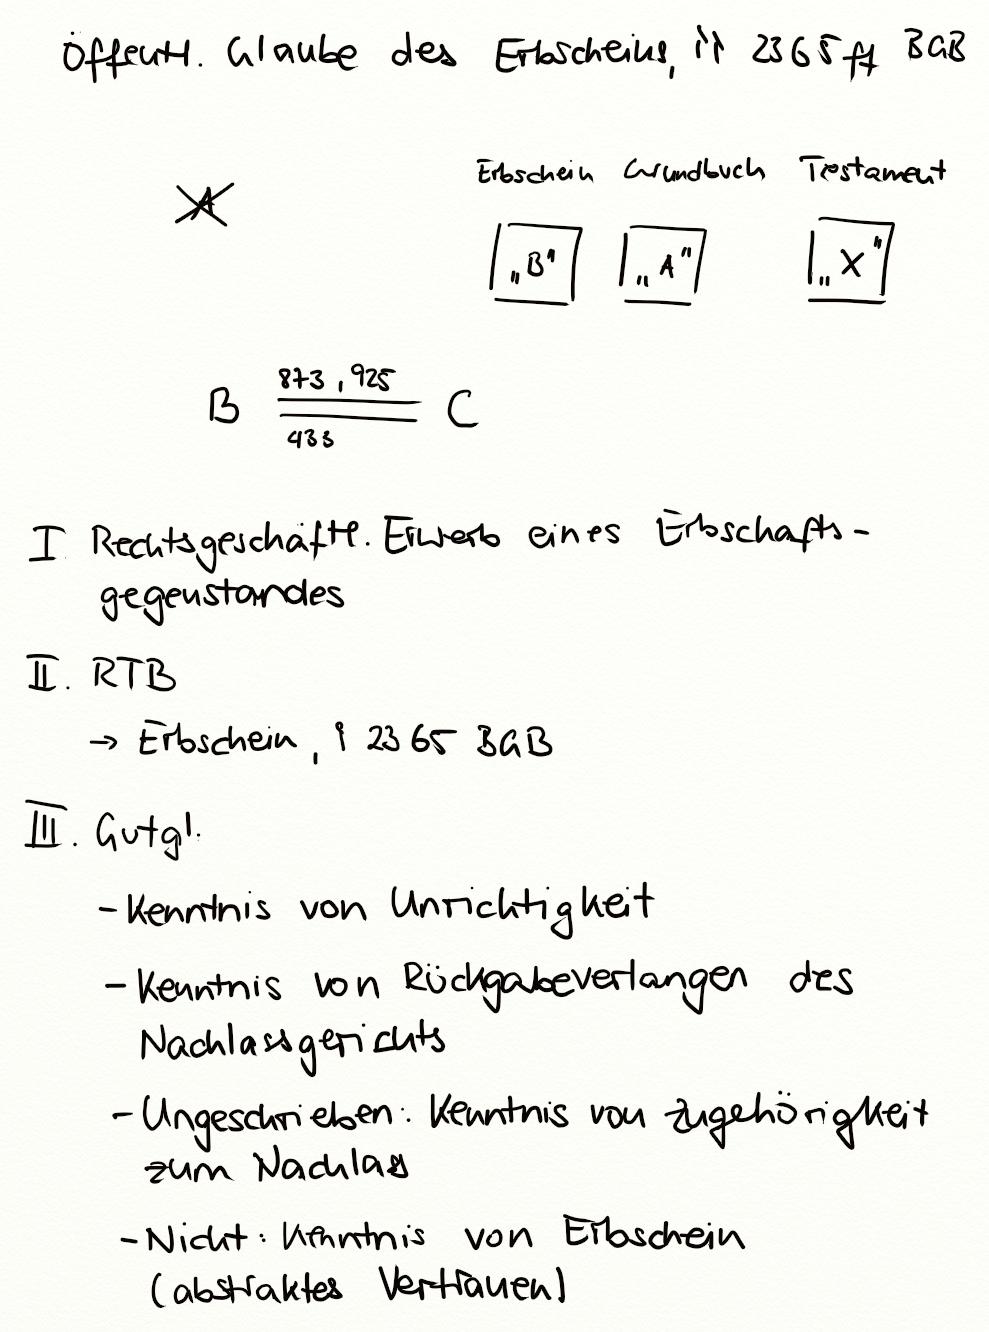 Öffentl. Glaube des Erbscheins, §§ 2365 ff BGB
Erbschein Grundbuch Testament
A
„B“ „A“ „X“
873, 925
B C
433
I Rechtsgeschäftl. Erwerb eines Erbschafts-
gegenstandes
II. RTB
→ Erbschein, § 2365 BGB
III. Gutgl.
- Kenntnis von Unrichtigkeit
- Kenntnis von Rückgabeverlangen des
Nachlassgerichts
- Ungeschrieben: Kenntnis von Zugehörigkeit
zum Nachlass
- Nicht: Kenntnis von Erbschein
(abstraktes Vertrauen)